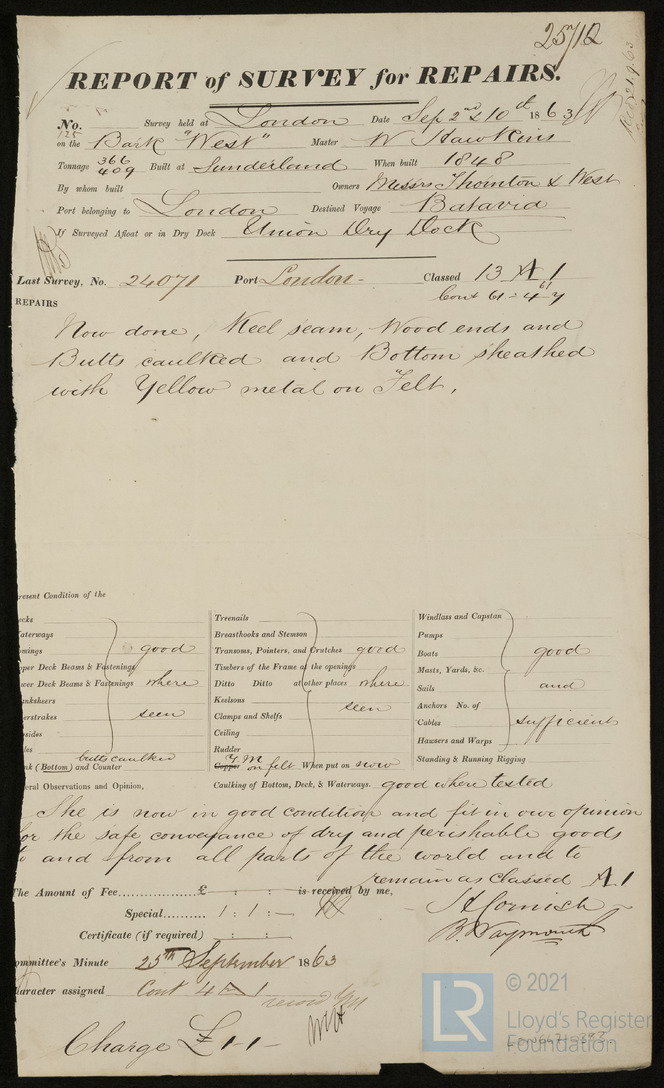 25712
REPORT of SURVEY for REPAIRS.
No. 125 Survey held at London Date Sep 2nd & 10th 1863
on the Bark "West" Master W Hawkins
Tonnage 366 409 Built at Sunderland When built 1848
By whom built Owners Messrs Thornton & West
Port belonging to London Destined Voyage Batavia
If Surveyed Afloat or in Dry Dock Union Dry Dock
Last Survey, No. 24071 Port London Classed 13 A 1
Cont 61 = 4
REPAIRS
Now done, Keel seam, Wood ends and
Butts caulked and Bottom sheathed
with Yellow metal on Felt.
resent Condition of the
ecks
aterways
mings good
pper Deck Beams & Fastenings
wer Deck Beams & Fastenings where
nksheers
erstrakes seen
psides
les
butts caulked
nk (Bottom) and Counter
Treenails
Breasthooks and Stemson
Transoms, Pointers, and Crutches good
Timbers of the Frame at the openings
Ditto Ditto at other places where
Keelsons seen
Clamps and Shelfs
Ceiling
Rudder
Copper Y.M on felt When put on now
Windlass and Capstan
Pumps
Boats good
Masts, Yards, &c.
Sails and
Anchors No. of
Cables sufficient
Hawsers and Warps
Standing & Running Rigging
eral Observations and Opinion, Caulking of Bottom, Deck, & Waterways. good where tested
She is now in good condition and fit in our opinion
for the safe conveyance of dry and perishable goods
to and from all parts of the world and to
remain as classed A.1
The Amount of Fee £ : : is received by me,
Special 1 : 1 : –
H Cornish
Certificate (if required) : :
B. Waymouth
ommittee's Minute 25th September 1863
haracter assigned Cont 4 A 1
record YM
Charge £1-1-
LR © 2021
Lloyd's Register
Foundation